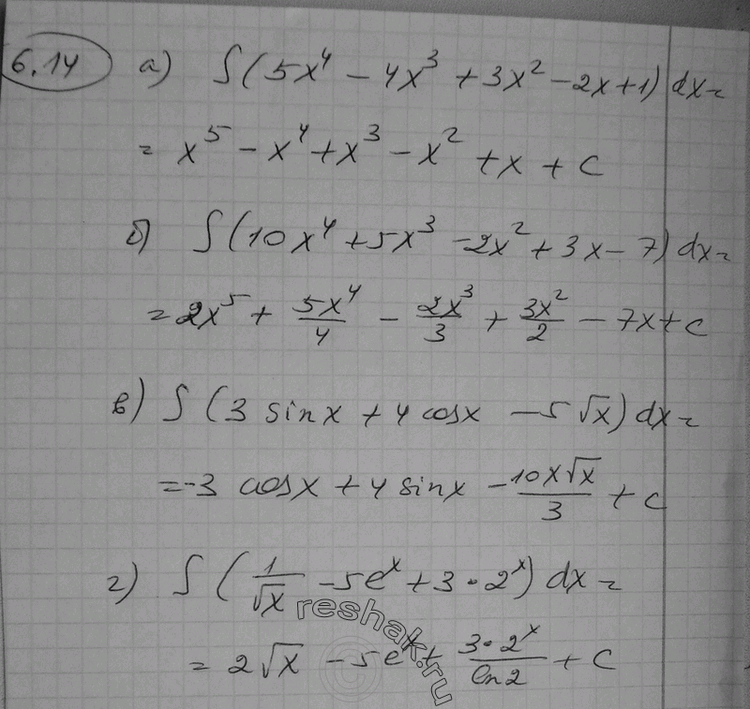 6.14 а) ∫(5x⁴ − 4x³ + 3x² − 2x + 1) dx =
= x⁵ − x⁴ + x³ − x² + x + c
б) ∫(10x⁴ + 5x³ − 2x² + 3x − 7) dx =
= 2x⁵ + 5x⁴/4 − 2x³/3 + 3x²/2 − 7x + c
в) ∫(3 sinx + 4 cosx − 5√x) dx =
= −3 cosx + 4 sinx − 10x√x/3 + c
г) ∫(1/√x − 5eˣ + 3·2ˣ) dx =
= 2√x − 5eˣ + 3·2ˣ/ln2 + c
reshak.ru